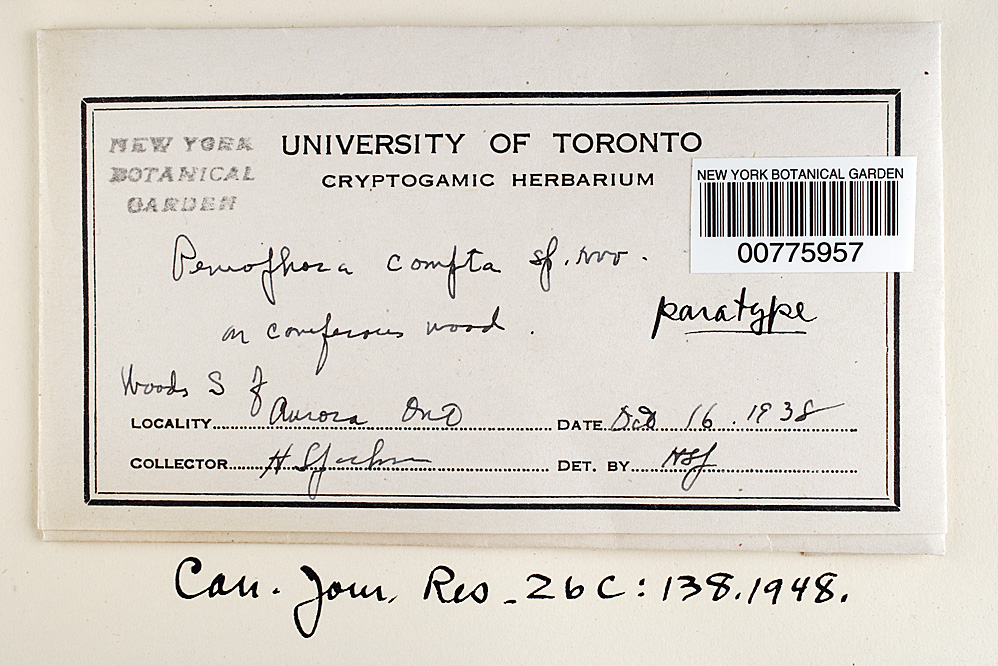 NEW YORK
BOTANICAL
GARDEN
UNIVERSITY OF TORONTO
CRYPTOGAMIC HERBARIUM
NEW YORK BOTANICAL GARDEN
00775957
Peniophora compta sp. nov.
on coniferous wood.
paratype
Woods S of
LOCALITY Aurora Ont
DATE Oct 16. 1938
COLLECTOR H S Jackson
DET. BY HSJ
Can. Jour. Res. 26C: 138. 1948.